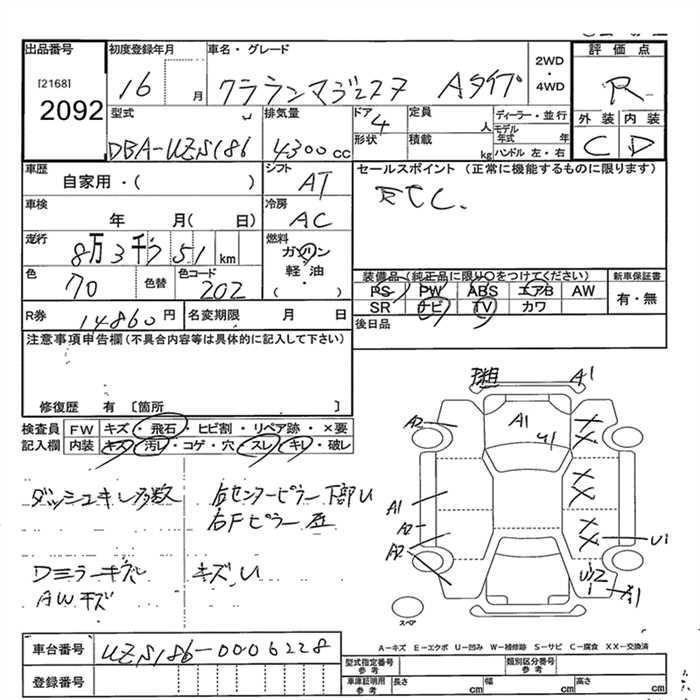 出品番号 初度登録年月 車名・グレード 2WD・4WD 評価点
[2168]
2092
16 月 クラウンマジェスタ Aタイプ R
型式 排気量 ドア 定員 人 ディーラー・並行 外装 内装
DBA-UZS186 4300cc 4 形状 積載 kg モデル年式 年 ハンドル 左・右 C D
車歴 シフト セールスポイント(正常に機能するものに限ります)
自家用・( ) AT
車検 冷房
年 月( 日) AC
走行 燃料
8万3千 51 km ガソリン
軽・油
・( )
色 色替 色コード
70 202
装備品(純正品に限り○をつけてください) 新車保証書
PS PW ABS エアB AW 有・無
SR ナビ TV カワ
後日品
R券 14860円 名変期限 月 日
注意事項申告欄(不具合内容等は具体的に記入して下さい)
修復歴 有[箇所 ]
検査員 FW キズ・飛石・ヒビ割・リペア跡・×要
記入欄 内装 キズ・汚レ・コゲ・穴・スレ・キレ・破レ
ダッシュキレ多数 右センターピラー下部U
右Fピラー歪
Dミラーキズレ キズU
AWキズ
A1
A2 A1 U1
A1
A2
A2 U1
U2
スペア
A-キズ E-エクボ U-凹み W-補修跡 S-サビ C-腐食 XX-交換済
車台番号 UZS186-0006228
登録番号
型式指定番号 参考 類別区分番号 参考
車庫証明用 参考 長さ cm 幅 cm 高さ cm